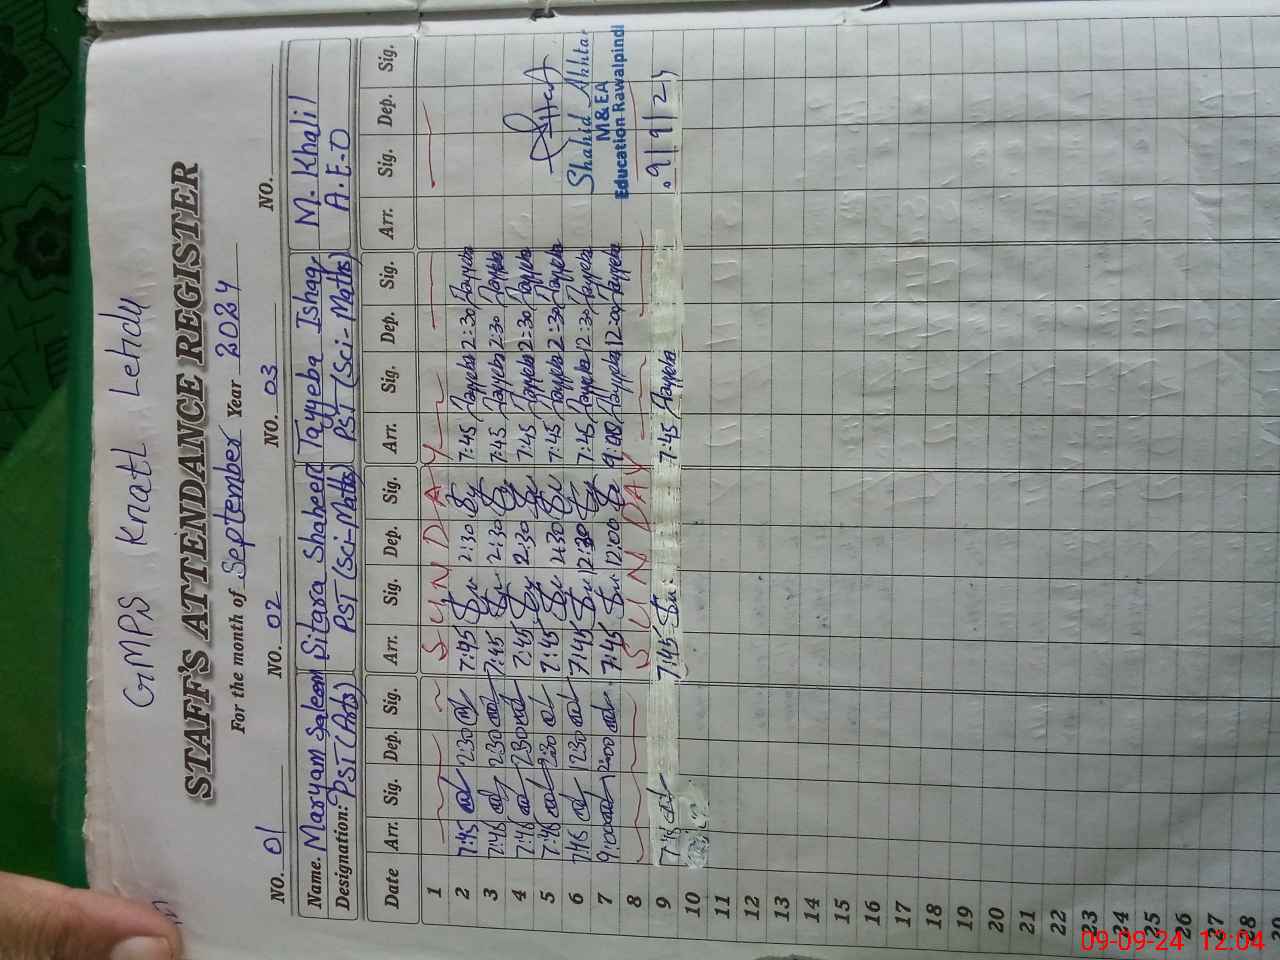 GMPS Knatl Lehdu
STAFF'S ATTENDANCE REGISTER
For the month of September Year 2024
NO. 01 NO. 02 NO. 03 NO.
Name. Maryam Saleem Sitara Shaheen Tayyeba Ishaq M. Khalil
Designation: PST (Arts) PST (Sci-Math) PST (Sci-Maths) A.E.O
Date Arr. Sig. Dep. Sig. Arr. Sig. Dep. Sig. Arr. Sig. Dep. Sig. Arr. Sig. Dep. Sig.
1 S U N D A Y
2 7:45 2:30 7:45 2:30 7:45 Tayyeba 2:30 Tayyeba
3 7:45 2:30 7:45 2:30 7:45 Tayyeba 2:30 Tayyeba
4 7:45 2:30 7:45 2:30 7:45 Tayyeba 2:30 Tayyeba
5 7:45 2:30 7:45 2:30 7:45 Tayyeba 2:30 Tayyeba
6 7:45 2:30 7:45 12:30 7:45 Tayyeba 12:30 Tayyeba
7 9:00 12:00 7:45 12:00 9:00 Tayyeba 12:00 Tayyeba
8 S U N D A Y
9 7:45 7:45 7:45 Tayyeba
Shahid Akhtar
M & EA
Education Rawalpindi
9/9/24
10
11
12
13
14
15
16
17
18
19
20
21
22
23
24
25
26
27
28
09-09-24 12:04